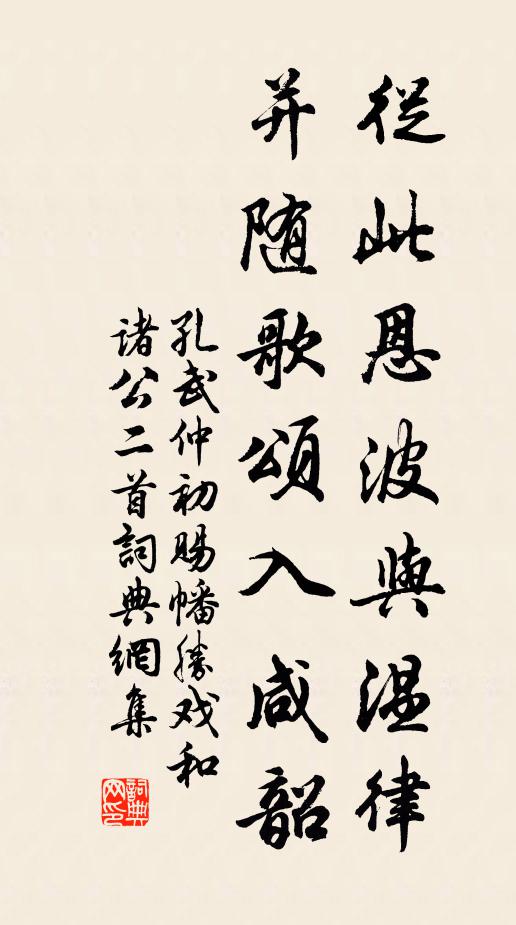 從此恩波與温律
并随歌頌入咸韶
孔武仲初賜幡勝戏和
諸公二首詞典網集
詞典网印